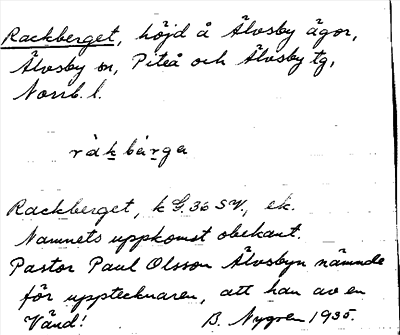 Rackberget, höjd å Älvsby ägor,
Älvsby sn, Piteå och Älvsby tg,
Norrb. l.
råkbärga
Rackberget, k G. 36 SV., ek.
Namnets uppkomst obekant.
Pastor Paul Olsson Älvsbyn nämnde
för upptecknaren, att han av en
Vänd! B. Nygren 1935.